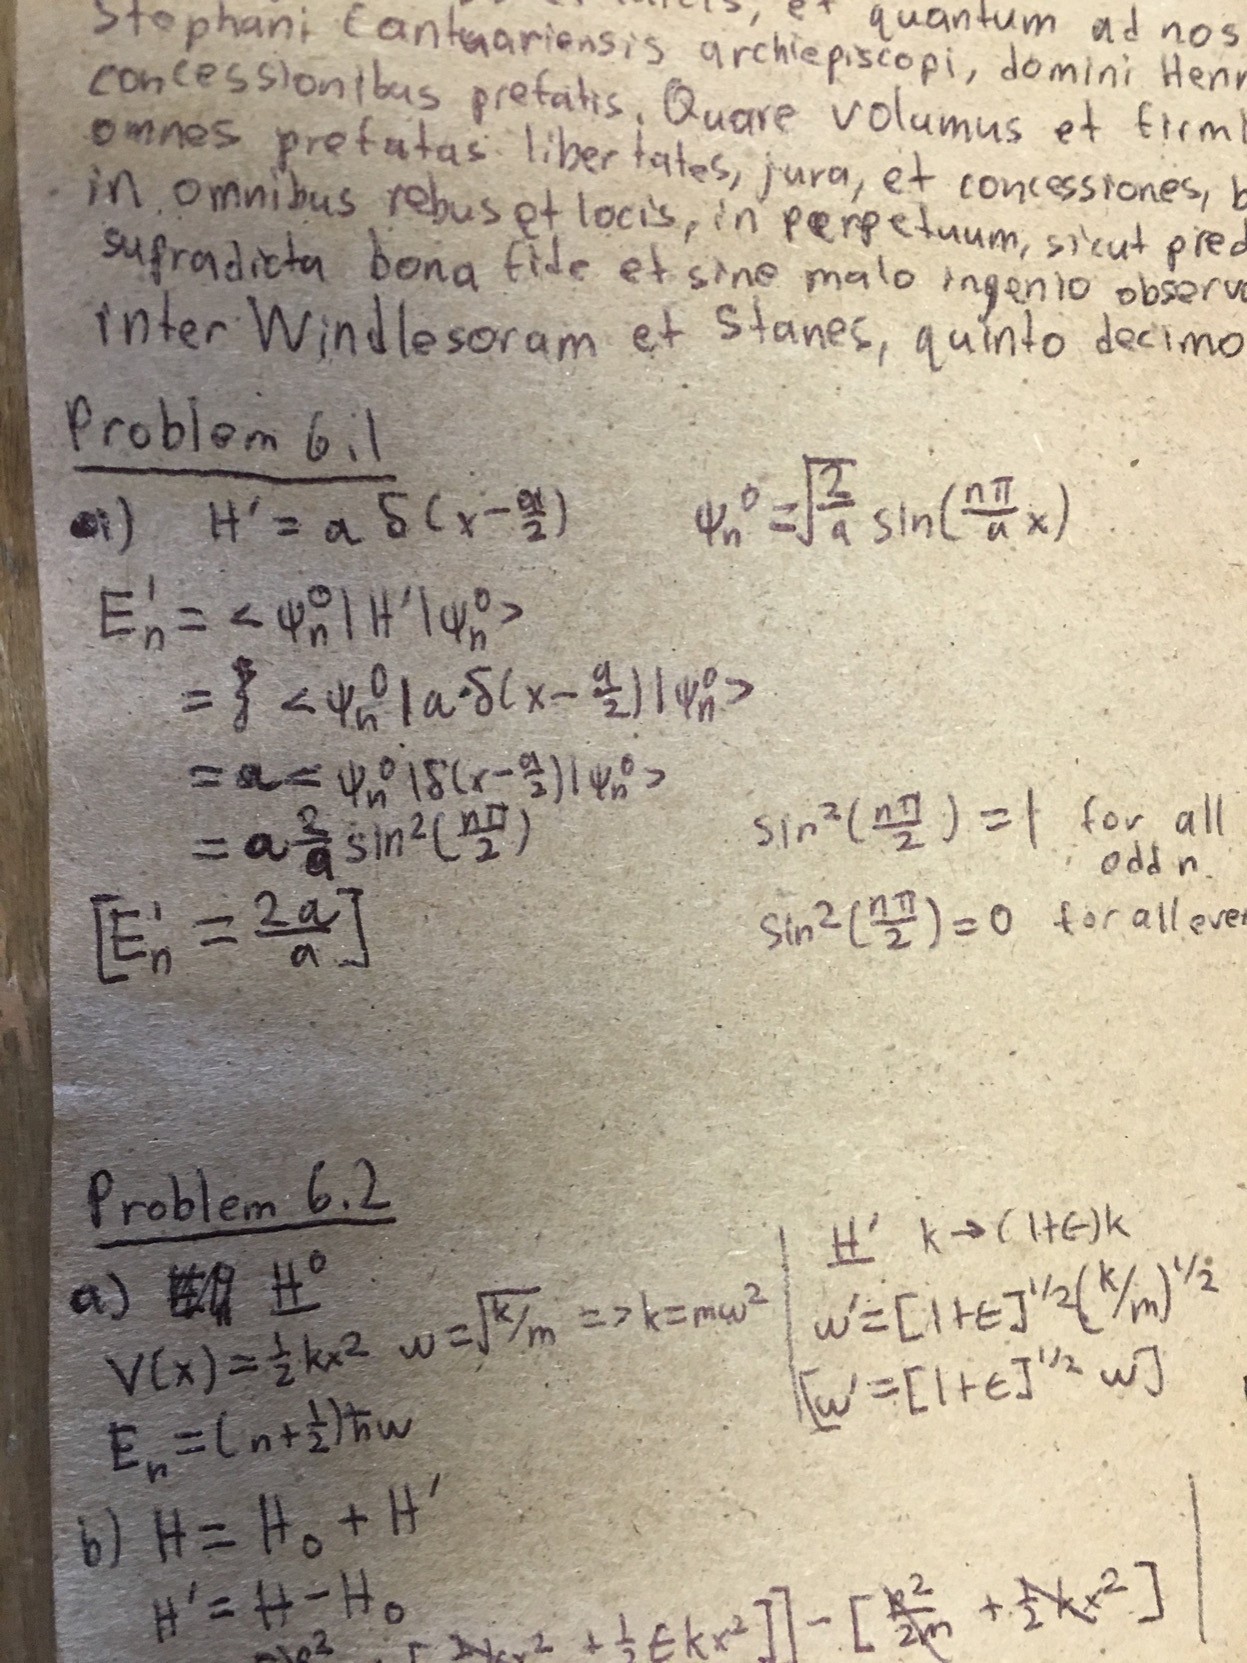 Stephani Cantuariensis archiepiscopi, domini Henr
concessionibus prefatis. Quare volumus et firmi
omnes prefatas libertates, jura, et concessiones, b
in omnibus rebus et locis, in perpetuum, sicut pred
supradicta bona fide et sine malo ingenio observa
inter Windlesoram et Stanes, quinto decimo
Problem 6.1
a) H' = a δ(x-a/2) ψn⁰ = √(2/a) sin(nπ/a x)
En' = <ψn⁰|H'|ψn⁰>
= <ψn⁰|a·δ(x-a/2)|ψn⁰>
= a<ψn⁰|δ(x-a/2)|ψn⁰>
= a 2/a sin²(nπ/2) sin²(nπ/2) = 1 for all
odd n.
[En' = 2a/a] sin²(nπ/2) = 0 for all even
Problem 6.2
a) H⁰
V(x) = ½kx² w = √k/m => k = mw²
En = (n+½)ħw
H' k → (1+ϵ)k
w' = [1+ϵ]^1/2 (k/m)^1/2
[w' = [1+ϵ]^1/2 w]
b) H = H₀ + H'
H' = H - H₀
+ ½ϵkx²]] - [p²/2m + ½kx²]